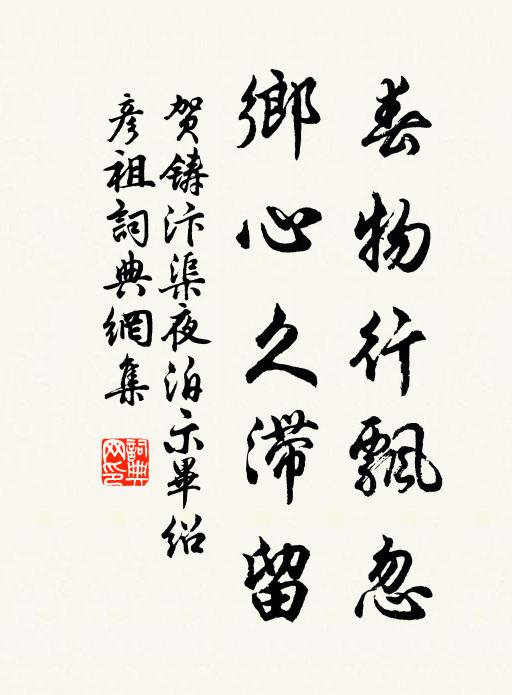 春物行飄忽
鄉心久滯留
賀鑄汴渠夜泊示畢紹
彥祖詞典網集
詞典网印